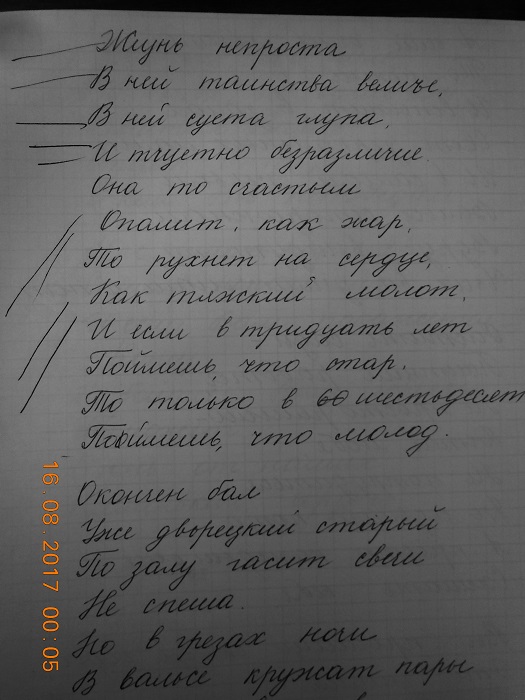 Жизнь непроста
В ней таинства величье,
В ней суета глупа,
И тщетно безразличие
Она то счастьем
Опалит, как жар,
То рухнет на сердце,
Как тяжский молот,
И если в тридцать лет
Поймешь, что стар,
То только в 60 шестьдесят
Поймешь, что молод.
Окончен бал
Уже дворецкий старый
По залу гасит свечи
Не спеша.
Но в грезах ночи
В вальсе кружат пары
16.08.2017 00:05